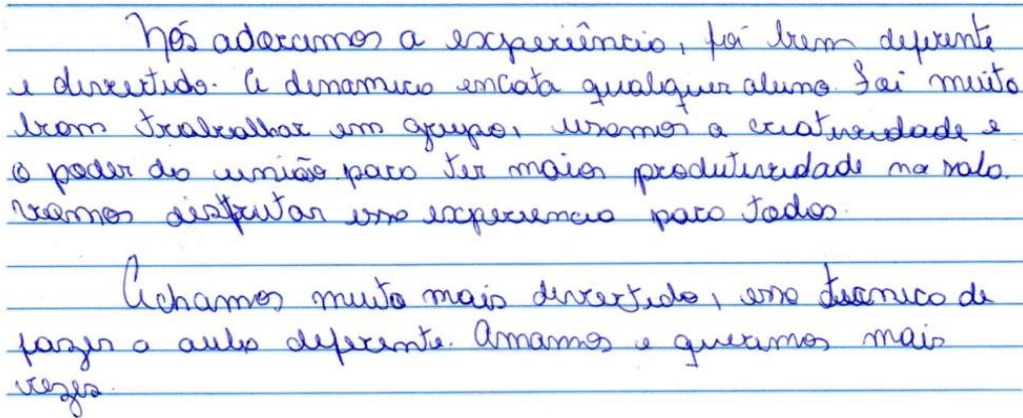 Nós adoramos a experiência, foi bem diferente
e divertido. A dinamica encata qualquer aluno. Foi muito
bom trabalhar em grupo, usamos a criatividade e
o poder da união para ter maior produtividade na sala.
vamos disfrutar essa experiencia para todos.
Achamos muito mais divertido, essa tecnica de
fazer a aula diferente. Amamos e queremos mais
vezes.